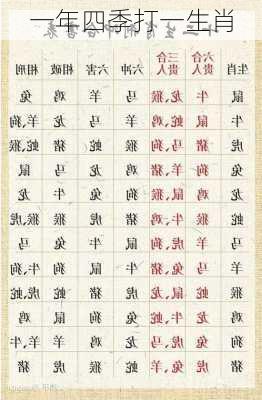 一年四季打一生肖
生肖 六合贵人 三合贵人 六冲 六害 相破 相刑
鼠 牛 龙,猴 马 羊 鸡 兔
牛 鼠 蛇,鸡 羊 马 龙 羊,狗
虎 猪 马,狗 猴 蛇 猪 蛇,猴
兔 狗 羊,猪 鸡 龙 马 鼠
龙 鸡 鼠,猴 狗 兔 牛 龙
蛇 猴 牛,鸡 猪 虎 猴 虎,猴
马 羊 虎,狗 鼠 牛 兔 马
羊 马 兔,猪 牛 鼠 狗 牛,狗
猴 蛇 鼠,龙 虎 猪 蛇 虎,蛇
鸡 龙 牛,蛇 兔 狗 鼠 鸡
狗 兔 虎,马 龙 鸡 羊 牛,羊
猪 虎 兔,羊 蛇 猴 虎 猪